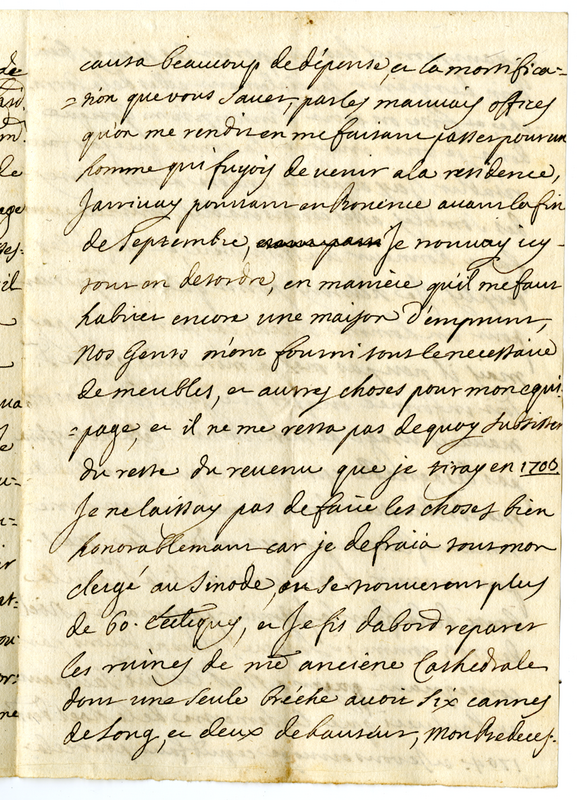 causa beaucoup de dépense, et la mortifica=
=tion que vous savez, par les mauvais offices
qu'on me rendit en me faisant passer pour un
homme qui fuyois de venir a la residence,
J'arrivay pourtant en Provence avant la fin
de Septembre, Je trouvay icy
tout en desordre, en maniere qu'il me faut
habiter encore une maison d'emprunt,
Nos Gents m'ont fourni tout le necessaire
de meubles, et autres choses pour mon equi-
=page, et il ne me resta pas de quoy subsister
du reste du revenu que je tiray en 1706
Je ne laissay pas de faire les choses bien
honorablemant car je defraia tout mon
clergé au Sinode, ou se trouverent plus
de 60. , et Je fis d'abord reparer
les ruines de anciene Cathedrale
dont une seule bréche avoit six cannes
de long, et deux de hauteur, Mon Predeces-
de
de
il
ua
ne